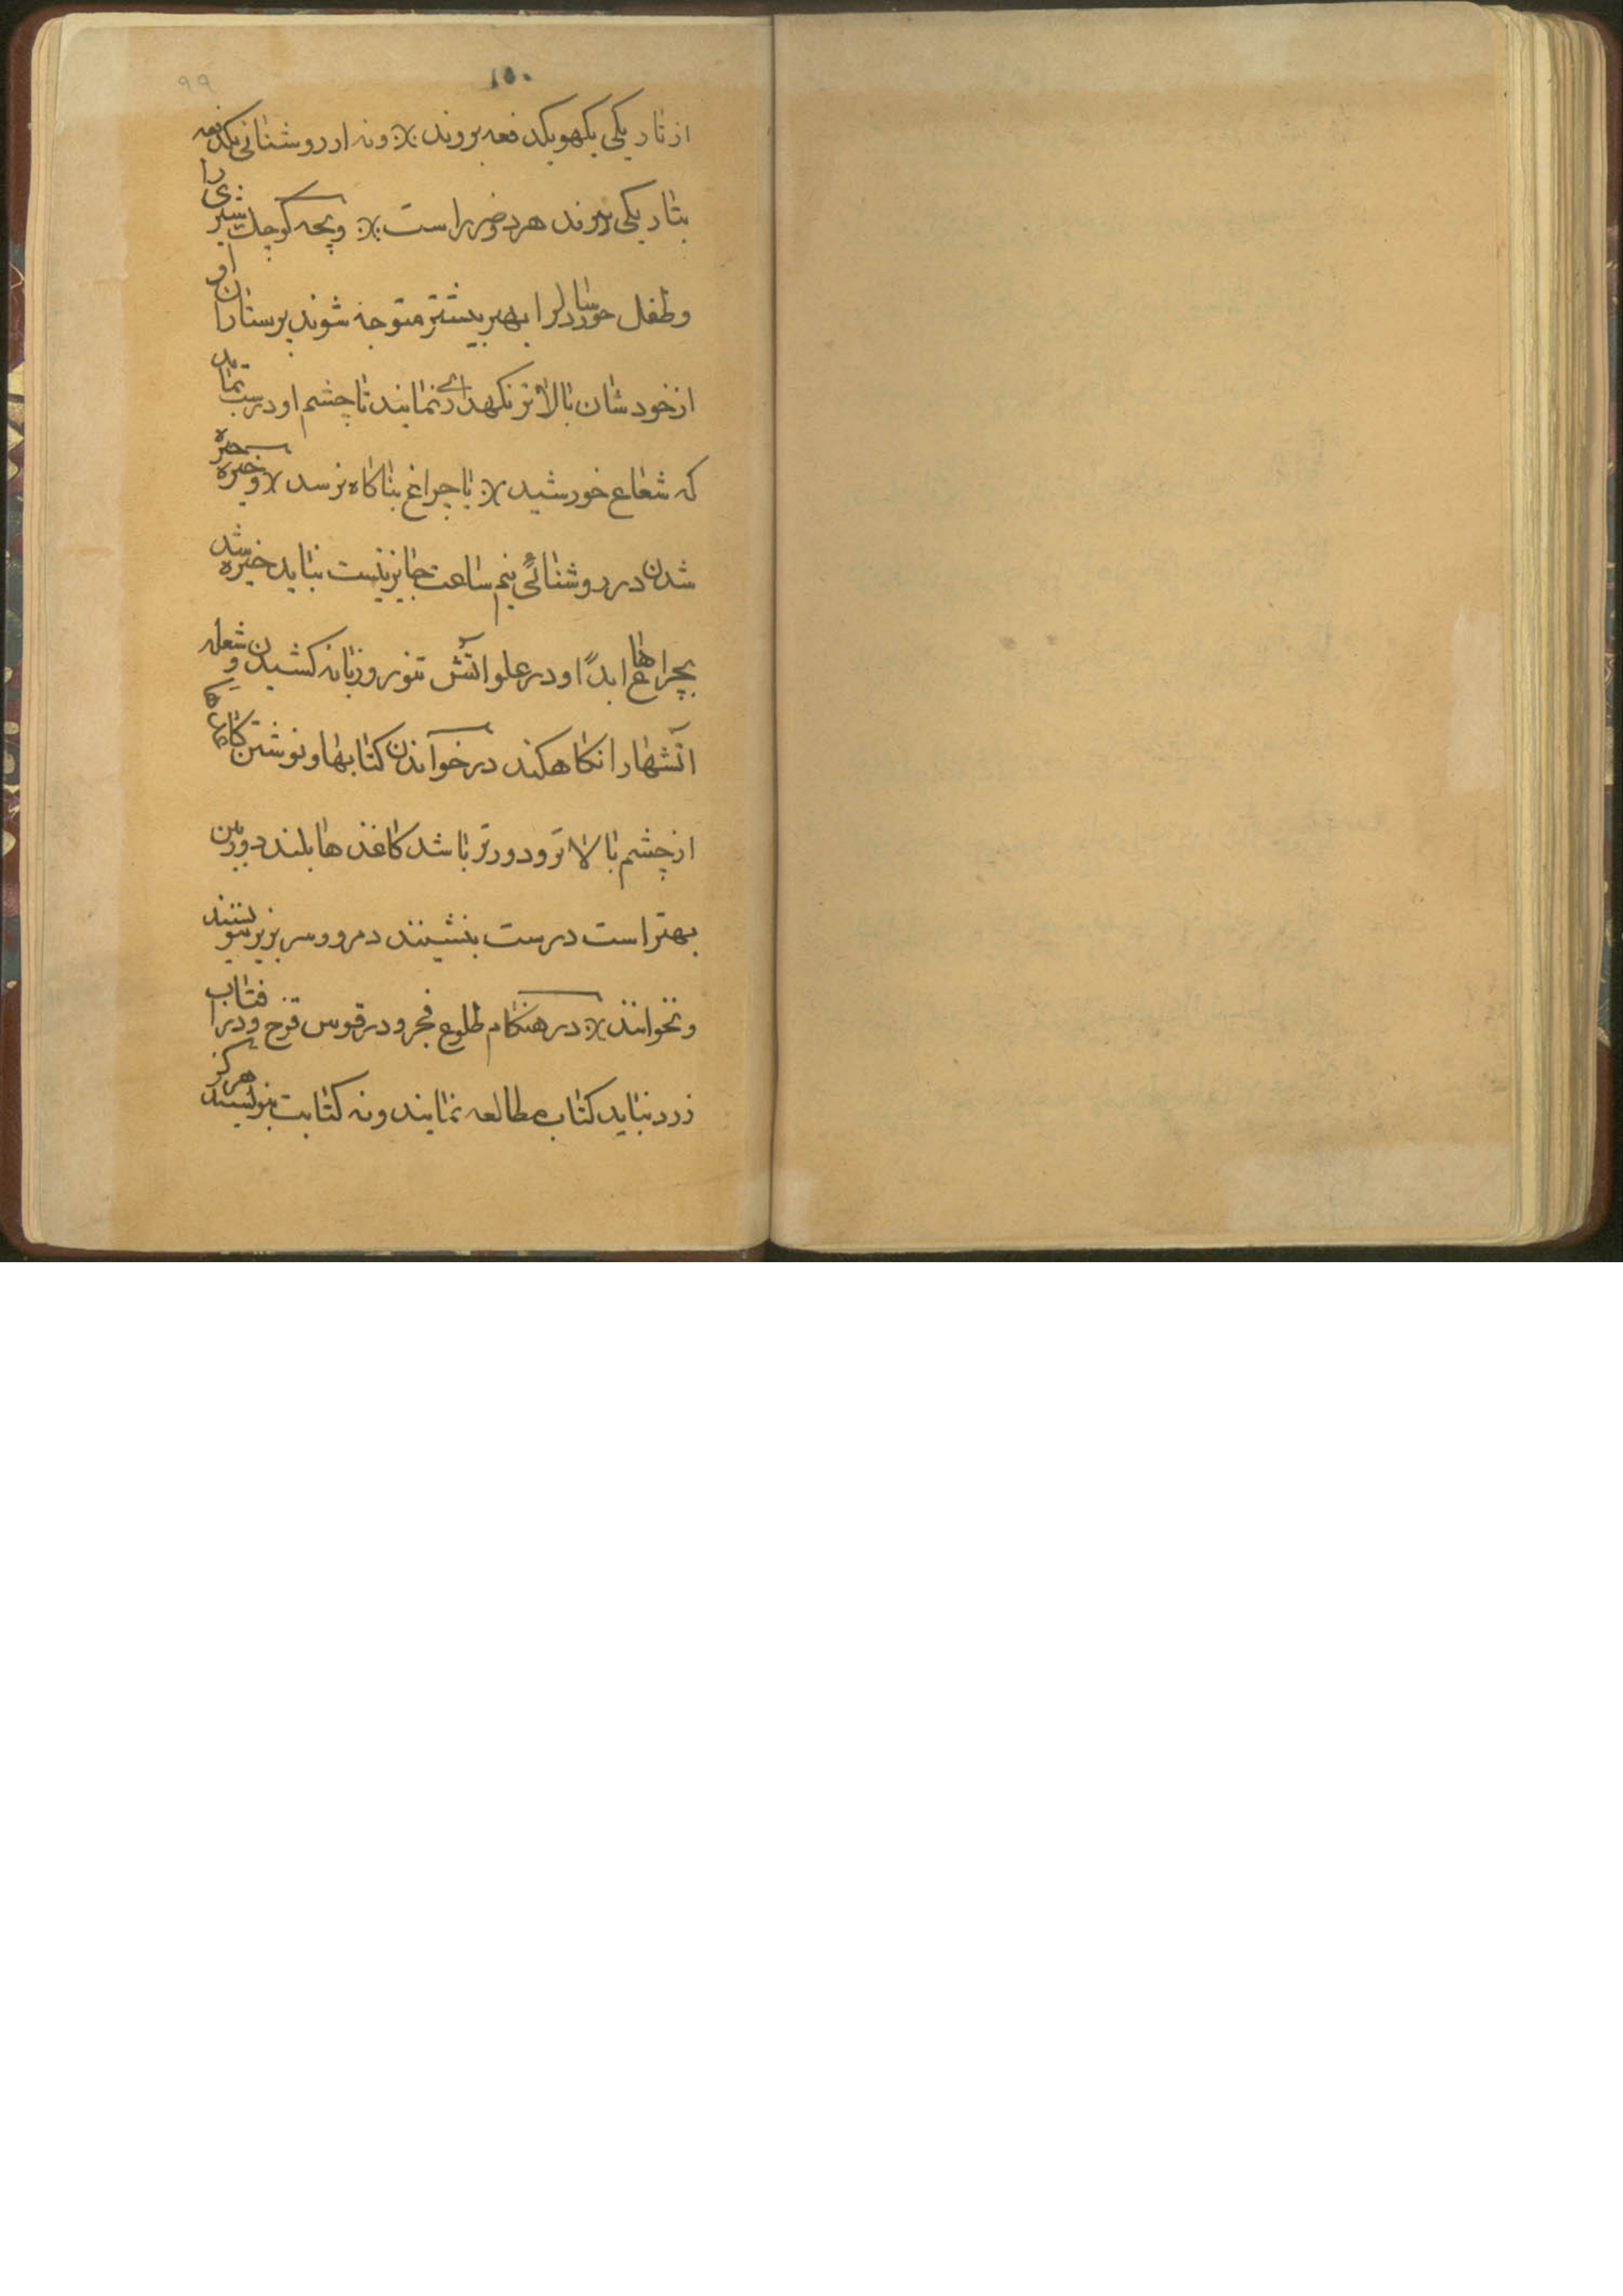 ۱۵۰
۹۹
از تاریکی یکهو یکدفعه بروند ؛ ونه از روشنائی یکدفعه
بتاریکی بروند هر دو ضرر است ؛ وبچه کوچک شیری را
وطفل خورد سال را بهر بیشتر متوجه شوند پرستاران او
از خودشان بالاتر نکهداری نمایند تا چشم او درست بماند
که شعاع خورشید ؛ یا چراغ بناکاه نرسد ؛ وخیره خیره
شدن در روشنائی نیم ساعت جایز نیست نباید خیره شد
بچراغ ها ابداً و در علو آتش تنور وزبانه کشیدن و شعله
آتشها را نکاه کنند در خواندن کتابها و نوشتن
از چشم بالاتر و دورتر باشد کاغذ ها بلند دوربین
بهتر است درست بنشینند دمر و و سر بزیر ننویسند
ونخوانند ؛ در هنکام طلوع فجر و در قوس قزح و در افتاب
زرد نباید کتاب مطالعه نمایند ونه کتابت بنویسند هرکز